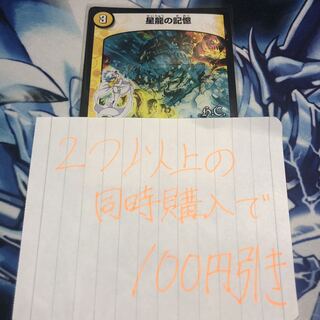 3
星龍の記憶
2つ以上の
同時購入で
100円引き